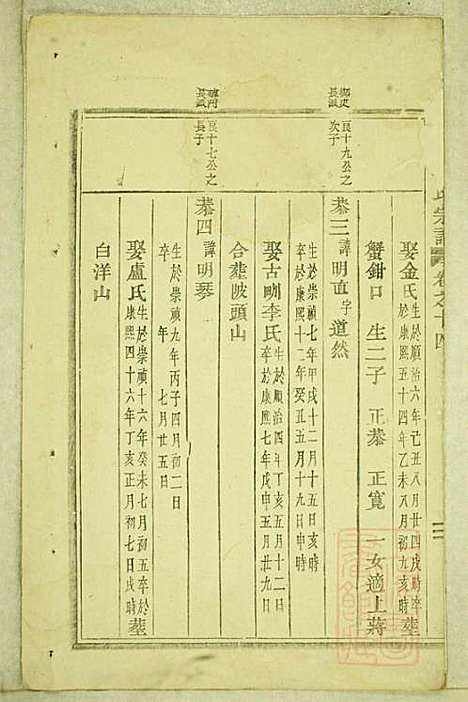 氏宗譜 卷之十四
娶金氏 生於順治六年己丑八月廿四戌時卒
於康熙五十四年乙未八月初九亥時 塟
蟹鉗口 生二子 正棻 正寬 一女適上蔣
長派
良十九公之
次子
棻三 諱明直 字道然
生於崇禎七年甲戌十二月十五日亥時
卒於康熙十二年癸丑五月十九日申時
娶古㽟李氏 生於順治四年丁亥五月十二日
卒於康熙七年戊申五月廿九日
合塟陂頭山
長派
良十七公之
長子
棻四 諱明琴
生於崇禎九年丙子四月初二日
卒 七月廿五日
娶盧氏 生於崇禎十六年癸未七月初五卒於
康熙四十六年丁亥正月初七日戌時 塟
白洋山